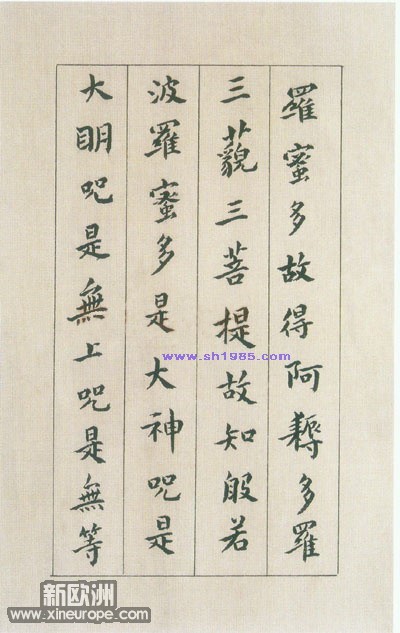 羅蜜多故得阿耨多羅
三藐三菩提故知般若
波羅蜜多是大神咒是
大明咒是無上咒是無等
www.sh1985.com
新欧洲
www.xineurope.com